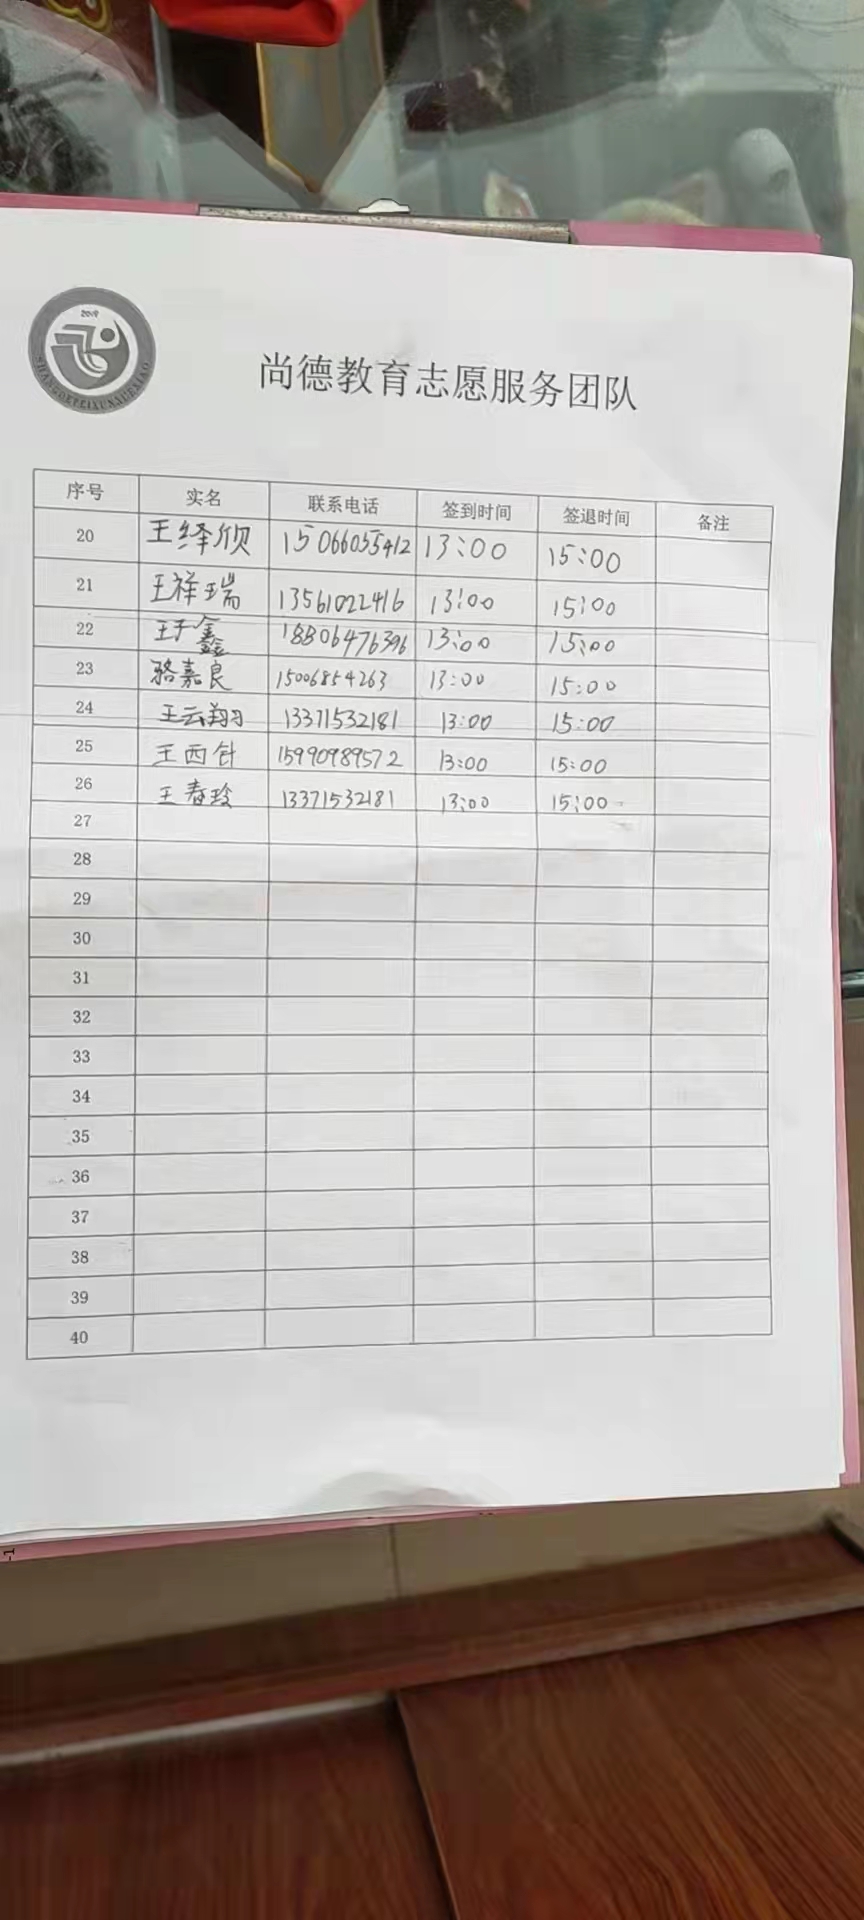 2019
SHANGDEPEIXUNXUEXIAO
尚德教育志愿服务团队
序号 实名 联系电话 签到时间 签退时间 备注
20 王绎欣 15066055412 13:00 15:00
21 王祥瑞 13561022416 13:00 15:00
22 王子鑫 18806476396 13:00 15:00
23 骆嘉良 15006854263 13:00 15:00
24 王云翔 13371532181 13:00 15:00
25 王西针 15990989572 13:00 15:00
26 王春玲 13371532181 13:00 15:00
27
28
29
30
31
32
33
34
35
36
37
38
39
40